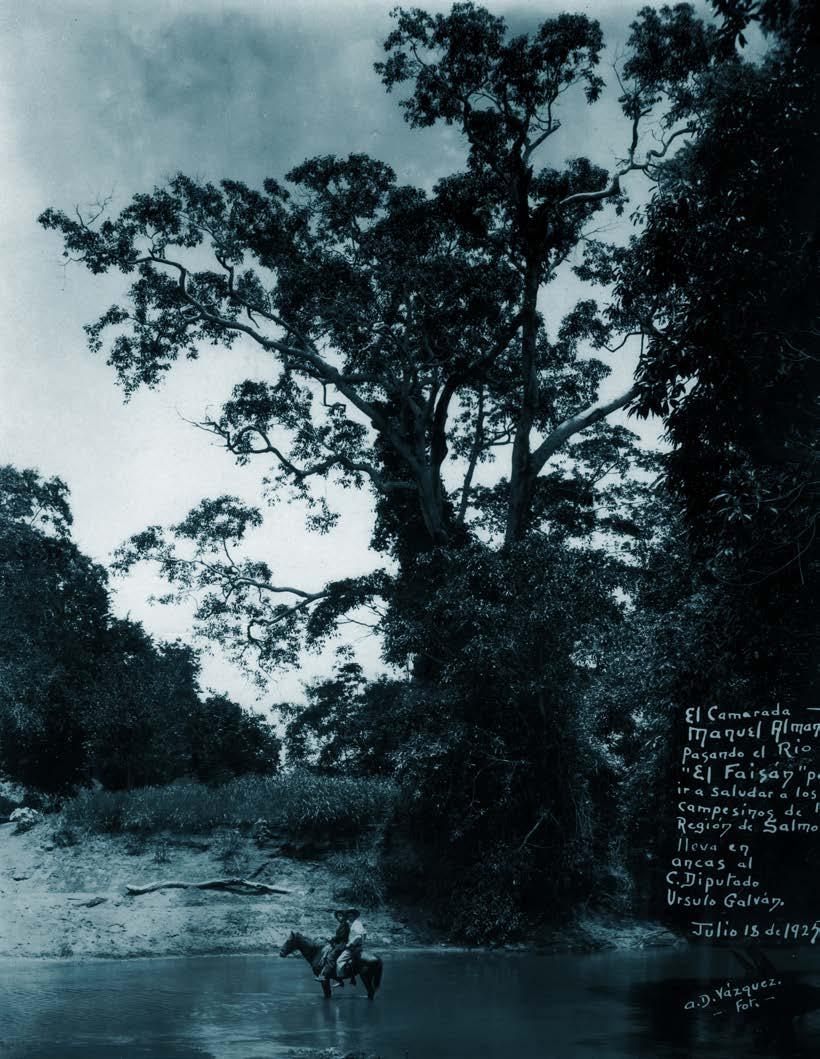 El Camarada
Manuel Alman
Pasando el Rio
"El Faisán" pa
ir a saludar a los
campesinos de l
Región de Salmo
lleva en
ancas al
C. Diputado
Ursulo Galván.
Julio 18 de 192
A.D. Vázquez.
- Fot. -